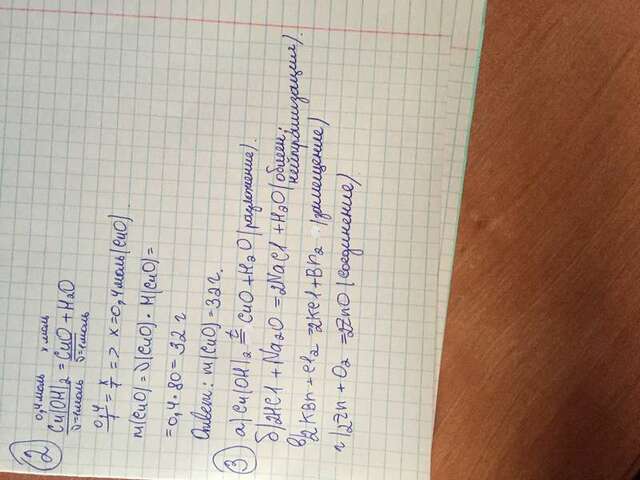 2
0,4 моль x моль
Cu(OH)₂ = CuO + H₂O
ν=1моль ν=1моль
0,4/1 = x/1 => x=0,4моль(CuO)
m(CuO) = ν(CuO) · M(CuO)=
=0,4·80=32 г
Ответ: m(CuO)=32г.
3 а) Cu(OH)₂ =t CuO + H₂O (разложение).
б) 2HCl + Na₂O = 2NaCl + H₂O (обмен;
нейтрализация).
в) 2KBr + Cl₂ = 2KCl + Br₂ (замещение)
г) 2Zn + O₂ = 2ZnO (соединение)